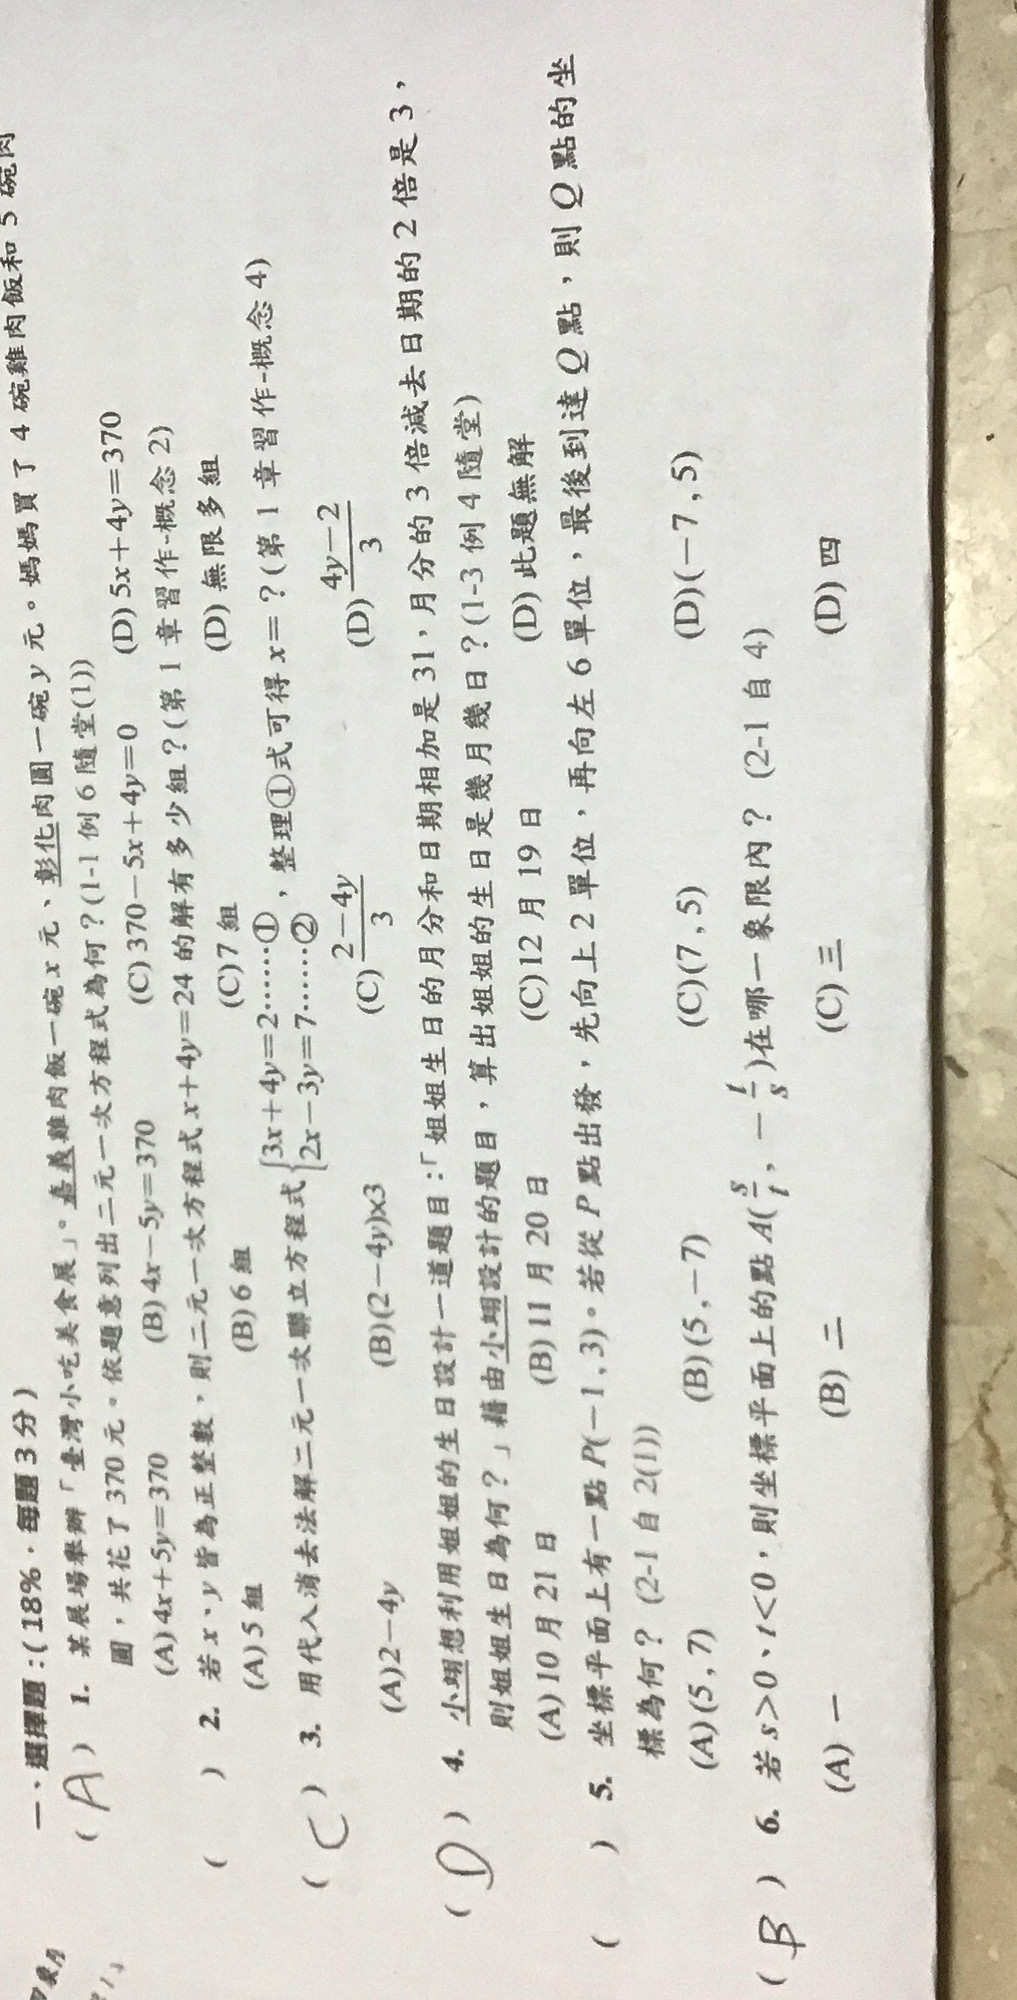 一、選擇題：(18%，每題3分)
(A) 1. 某展場舉辦「臺灣小吃美食展」。嘉義雞肉飯一碗x元、彰化肉圓一碗y元。媽媽買了4碗雞肉飯和5碗肉
圓，共花了370元。依題意列出二元一次方程式為何？(1-1例6隨堂(1))
(A) 4x＋5y＝370 (B) 4x－5y＝370 (C) 370－5x＋4y＝0 (D) 5x＋4y＝370
( ) 2. 若x、y皆為正整數，則二元一次方程式x＋4y＝24的解有多少組？(第1章習作-概念2)
(A) 5組 (B) 6組 (C) 7組 (D) 無限多組
(C) 3. 用代入消去法解二元一次聯立方程式{3x＋4y＝2……① 2x－3y＝7……②，整理①式可得x＝？(第1章習作-概念4)
(A) 2－4y (B) (2－4y)x3 (C) (2－4y)/3 (D) (4y－2)/3
(D) 4. 小翊想利用姐姐的生日設計一道題目：「姐姐生日的月分和日期相加是31，月分的3倍減去日期的2倍是3，
則姐姐生日為何？」藉由小翊設計的題目，算出姐姐的生日是幾月幾日？(1-3例4隨堂)
(A) 10月21日 (B) 11月20日 (C) 12月19日 (D) 此題無解
( ) 5. 坐標平面上有一點P(－1,3)。若從P點出發，先向上2單位，再向左6單位，最後到達Q點，則Q點的坐
標為何？(2-1自2(1))
(A) (5,7) (B) (5,－7) (C) (7,5) (D) (－7,5)
(B) 6. 若s>0、t<0，則坐標平面上的點A(s/t,－t/s)在哪一象限內？(2-1自4)
(A) 一 (B) 二 (C) 三 (D) 四